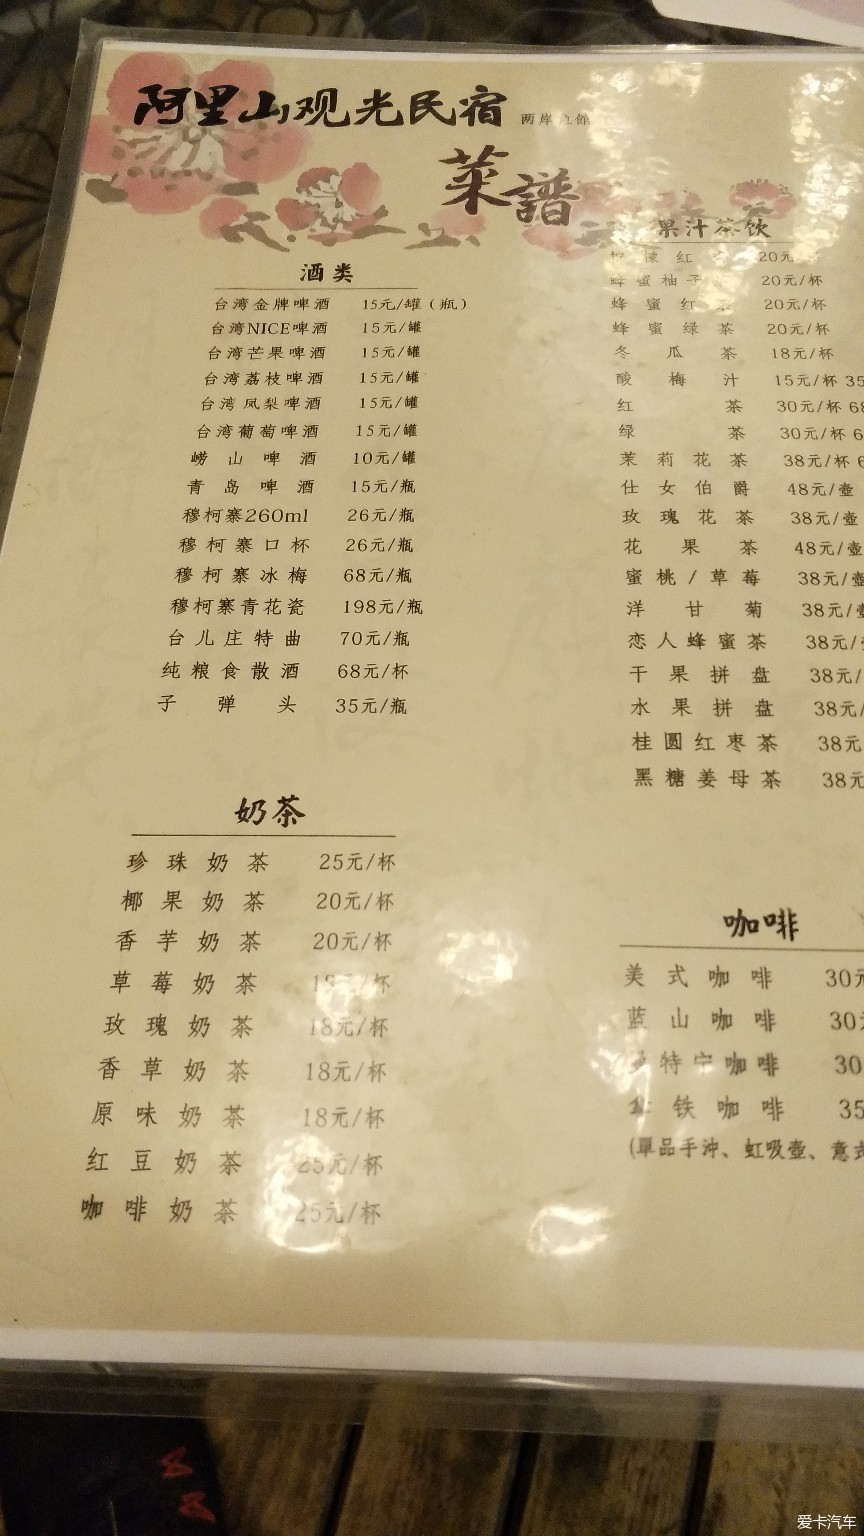 阿里山观光民宿 两岸
菜譜
酒类
台湾金牌啤酒 15元/罐(瓶)
台湾NICE啤酒 15元/罐
台湾芒果啤酒 15元/罐
台湾荔枝啤酒 15元/罐
台湾凤梨啤酒 15元/罐
台湾葡萄啤酒 15元/罐
崂山啤酒 10元/罐
青岛啤酒 15元/瓶
穆柯寨260ml 26元/瓶
穆柯寨口杯 26元/瓶
穆柯寨冰梅 68元/瓶
穆柯寨青花瓷 198元/瓶
台儿庄特曲 70元/瓶
纯粮食散酒 68元/杯
子弹头 35元/瓶
奶茶
珍珠奶茶 25元/杯
椰果奶茶 20元/杯
香芋奶茶 20元/杯
草莓奶茶 18元/杯
玫瑰奶茶 18元/杯
香草奶茶 18元/杯
原味奶茶 18元/杯
红豆奶茶 25元/杯
咖啡奶茶 25元/杯
果汁茶饮
柠檬红茶 20元/杯
蜂蜜柚子茶 20元/杯
蜂蜜红茶 20元/杯
蜂蜜绿茶 20元/杯
冬瓜茶 18元/杯
酸梅汁 15元/杯 35
红茶 30元/杯 68
绿茶 30元/杯 6
茉莉花茶 38元/杯 6
仕女伯爵 48元/壶
玫瑰花茶 38元/壶
花果茶 48元/壶
蜜桃/草莓 38元/壶
洋甘菊 38元/壶
恋人蜂蜜茶 38元/
干果拼盘 38元/
水果拼盘 38元/
桂圆红枣茶 38元
黑糖姜母茶 38元
咖啡
美式咖啡 30元
蓝山咖啡 30元
曼特宁咖啡 30
拿铁咖啡 35
(單品手沖、虹吸壺、意式
爱卡汽车